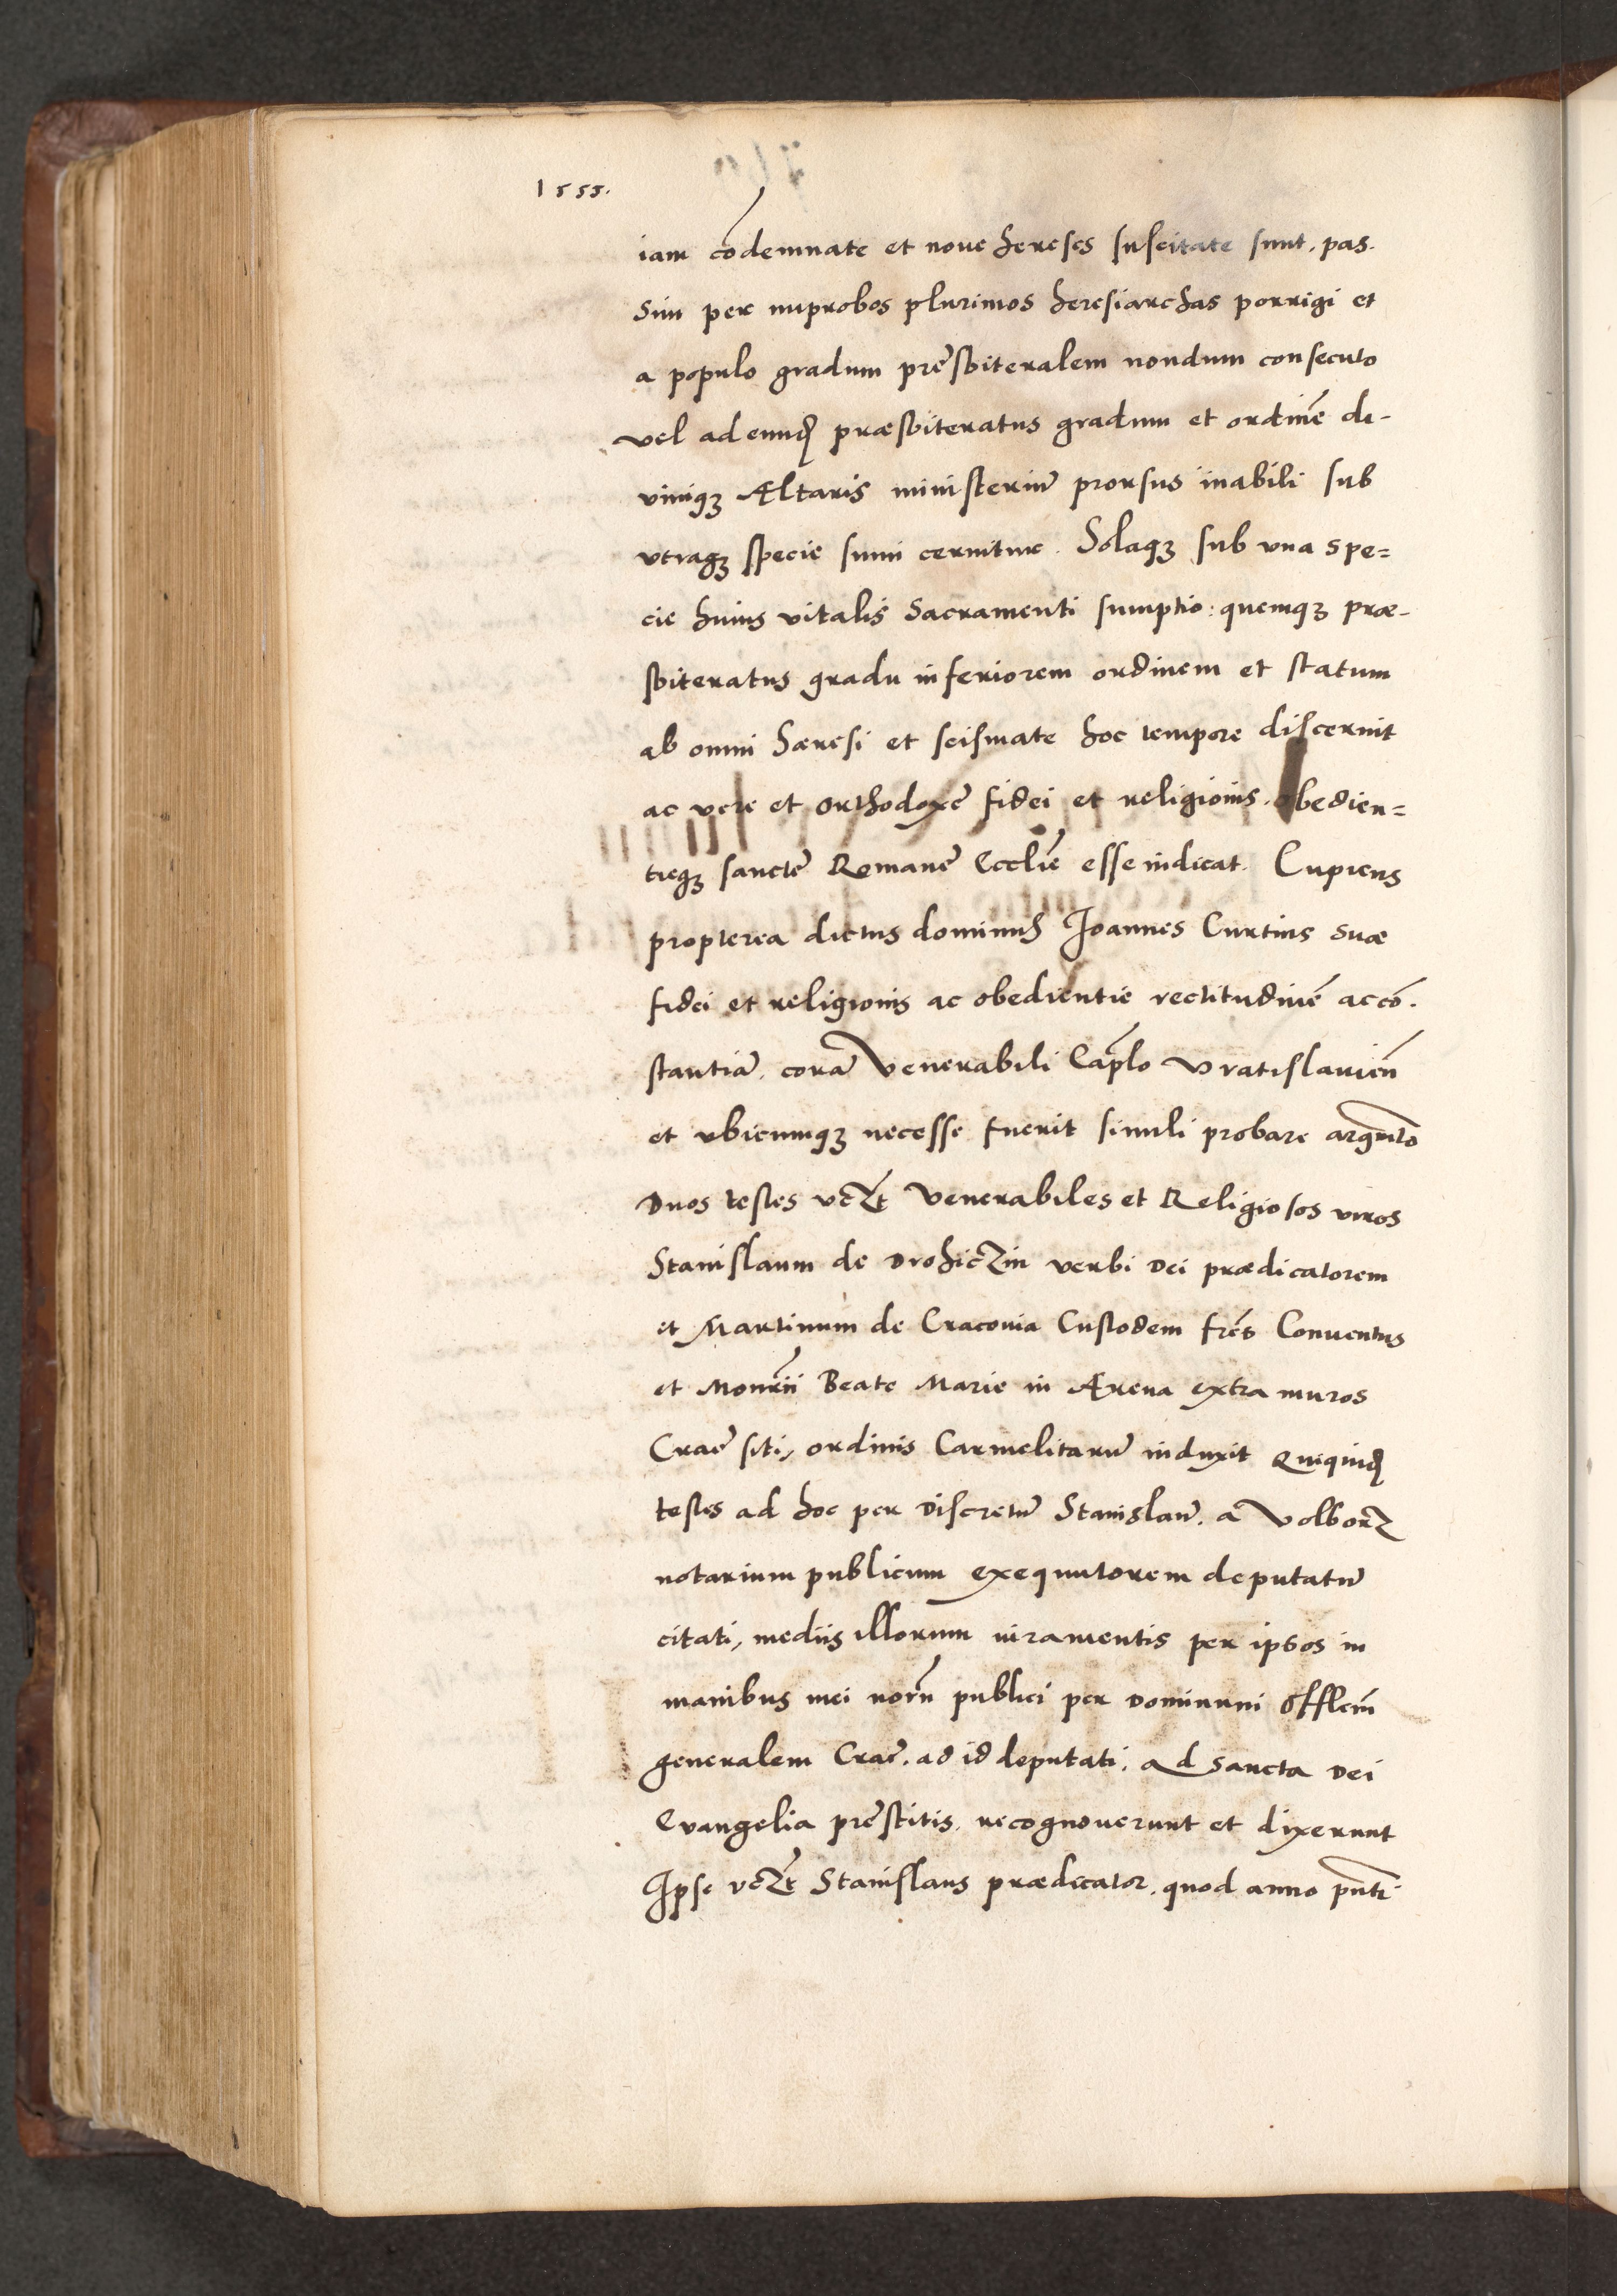 1555.
iam co᷃demnate et noue hereses suscitate sunt. pas.
sim per improbos plurimos heresiarchas porrigi et
a populo gradum pręsbiteralem nondum consecuto
vel ad eundꝫ præsbiteratus gradum et ordinẽ di-
viniqꝫ Altaris ministeriũ prorsus inabili sub
vtraqꝫ specie sumi cernitur. Solaqꝫ sub vna spe=
cie huius vitalis Sacramenti sumptio: quemqꝫ præ-
sbiteratus gradu inferiorem ordinem et statum
ab omni hæresi et scismate hoc tempore discernit
ac verę et orthodoxę fidei et religionis. obedien=
tięqꝫ sanctę Romanę Ecclię esse indicat. Cupiens
propterea dictus dominus Joannes Curtius suæ
fidei et religionis ac obedientię rectitudinẽ ac cõ.
stantiã. corã Venerabili Caplo Vratislauieñ
et vbicumqꝫ necesse fuerit simili probare argumto
Duos testes vczt Venerabiles et Religiosos viros
Stanislaum de Drohiczin verbi Dei prædicatorem
et Martinum de Cracouia Custodem fres Conuentus
et Monrii Beate Marie in Arena extra muros
Crac̃ siti, ordinis Carmelitarũ induxit Quiquidꝫ
testes ad hoc per Discretũ Stanislaũ. a Volborz
notarium publicum exequutorem deputatũ
citati, mediis illorum iuramentis per ipsos in
manibus mei norñ publici per Dominum Offlem̃
generalem Crac̃. ad id deputati. ad sancta Dei
Evangelia pręstitis. recognouerunt et dixerunt
Ipse vczt Stanislaus prædicator. quod anno pñti